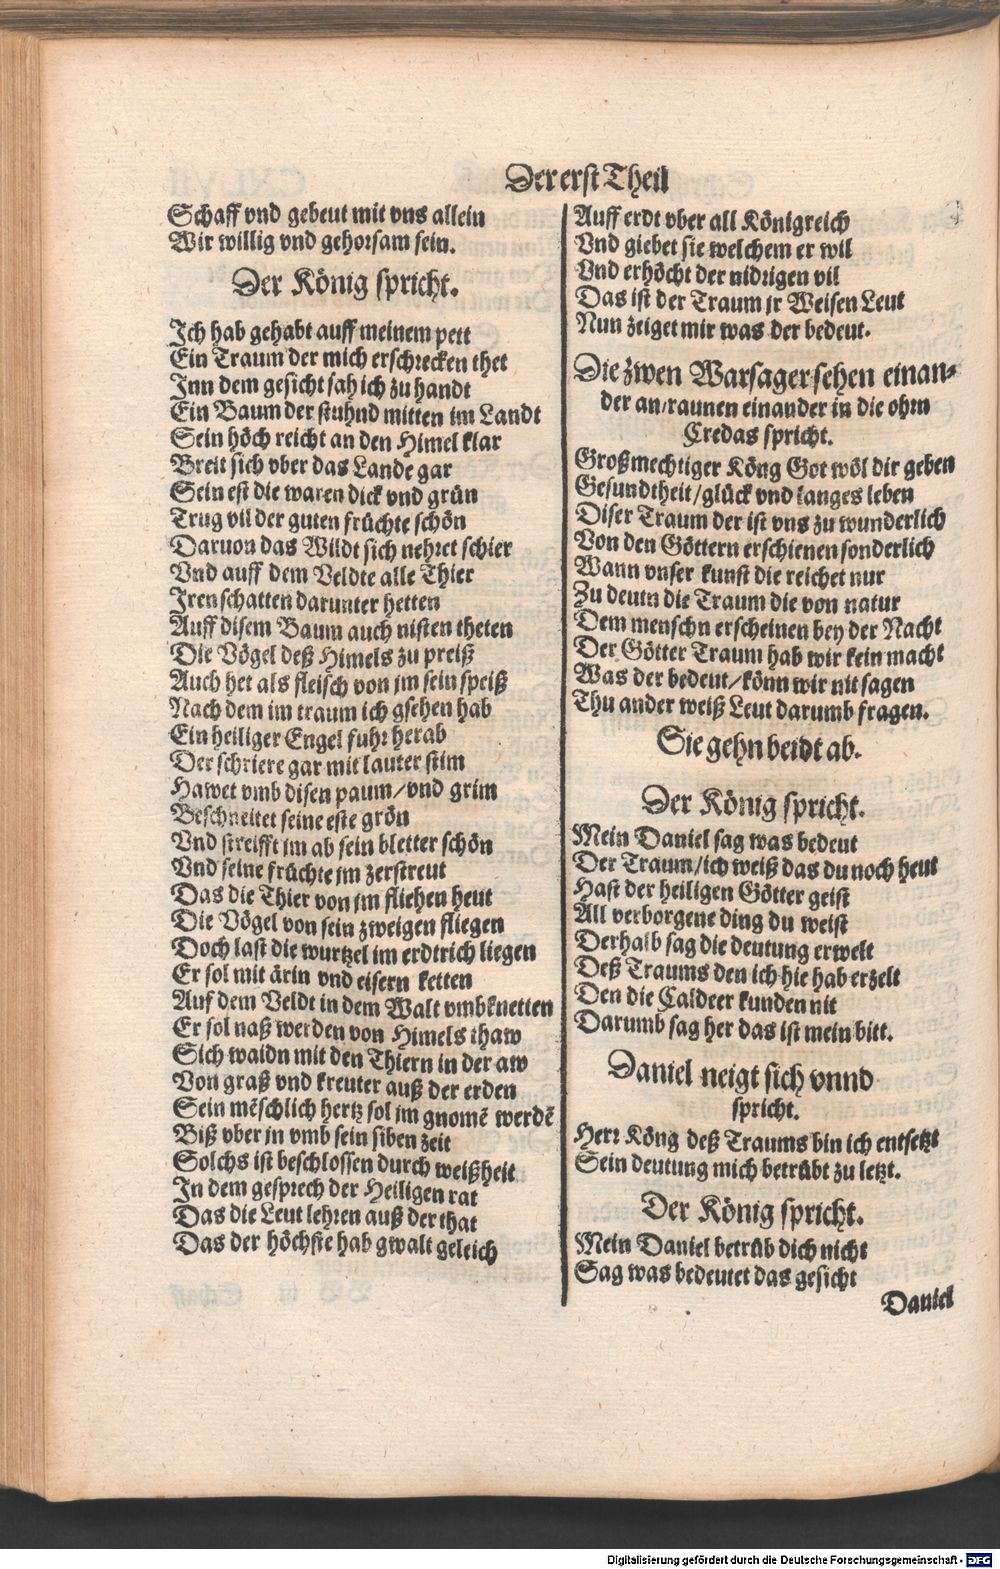 Der erst Theil
Schaff vnd gebeut mit vns allein
Wir willig vnd gehorsam sein.
Der König spricht.
Ich hab gehabt auff meinem pett
Ein Traum der mich erschrecken thet
Inn dem gesicht sah ich zu handt
Ein Baum der stuhnd mitten im Landt
Sein höch reicht an den Himel klar
Breit sich vber das Lande gar
Sein est die waren dick vnd grün
Trug vil der guten früchte schön
Daruon das Wildt sich nehret schier
Vnd auff dem Veldte alle Thier
Iren schatten darunter hetten
Auff disem Baum auch nisten theten
Die Vögel deß Himels zu preiß
Auch het als fleisch von jm sein speiß
Nach dem im traum ich gsehen hab
Ein heiliger Engel fuhr herab
Der schriere gar mit lauter stim
Hawet vmb disen paum/vnd grim
Beschneitet seine este grön
Vnd streifft im ab sein bletter schön
Vnd seine früchte jm zerstreut
Das die Thier von jm fliehen heut
Die Vögel von sein zweigen fliegen
Doch last die wurtzel im erdtrich liegen
Er sol mit ärin vnd eisern ketten
Auf dem Veldt in dem Walt vmbknetten
Er sol naß werden von Himels thaw
Sich waidn mit den Thiern in der aw
Von graß vnd kreuter auß der erden
Sein mēschlich hertz sol im gnomē werdē
Biß vber jn vmb sein siben zeit
Solchs ist beschlossen durch weißheit
In dem gesprech der Heiligen rat
Das die Leut lehren auß der that
Das der höchste hab gwalt geleich
Auff erdt vber all Königreich
Vnd giebet sie welchem er wil
Vnd erhöcht der nidrigen vil
Das ist der Traum jr Weisen Leut
Nun zeiget mir was der bedeut.
Die zwen Warsager sehen einan-
der an/raunen einander in die ohrn
Credas spricht.
Großmechtiger Köng Got wöl dir geben
Gesundtheit/glück vnd langes leben
Diser Traum der ist vns zu wunderlich
Von den Göttern erschienen sonderlich
Wann vnser kunst die reichet nur
Zu deutn die Traum die von natur
Dem menschn erscheinen bey der Nacht
Der Götter Traum hab wir kein macht
Was der bedeut/könn wir nit sagen
Thu ander weiß Leut darumb fragen.
Sie gehn beidt ab.
Der König spricht.
Mein Daniel sag was bedeut
Der Traum/ich weiß das du noch heut
Hast der heiligen Götter geist
All verborgene ding du weist
Derhalb sag die deutung erwelt
Deß Traums den ich hie hab erzelt
Den die Caldeer kunden nit
Darumb sag her das ist mein bitt.
Daniel neigt sich vnnd
spricht.
Herr Köng deß Traums bin ich entsetzt
Sein deutung mich betrübt zu letzt.
Der König spricht.
Mein Daniel betrüb dich nicht
Sag was bedeutet das gesicht
Daniel
Digitalisierung gefördert durch die Deutsche Forschungsgemeinschaft - DFG